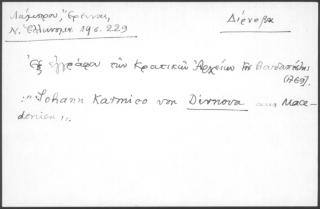 Λάμπρου, "Έρευναι,"
Ν. Ἑλληνομν. 19 σ. 229
Δίρνοβα
Ἐξ ἐγγράφου τῶν Κρατικῶν Ἀρχείων τῆς Βουδαπέστης
(1769).
:"Johann Karmico von Dirnova aus Mace-
donien".